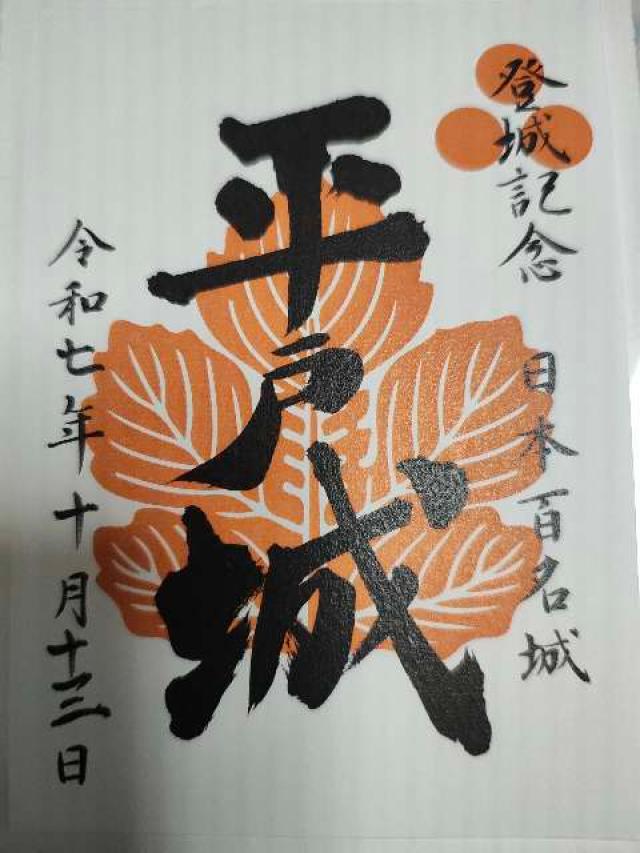 登城記念
日本百名城
平戸城
令和七年十月十三日